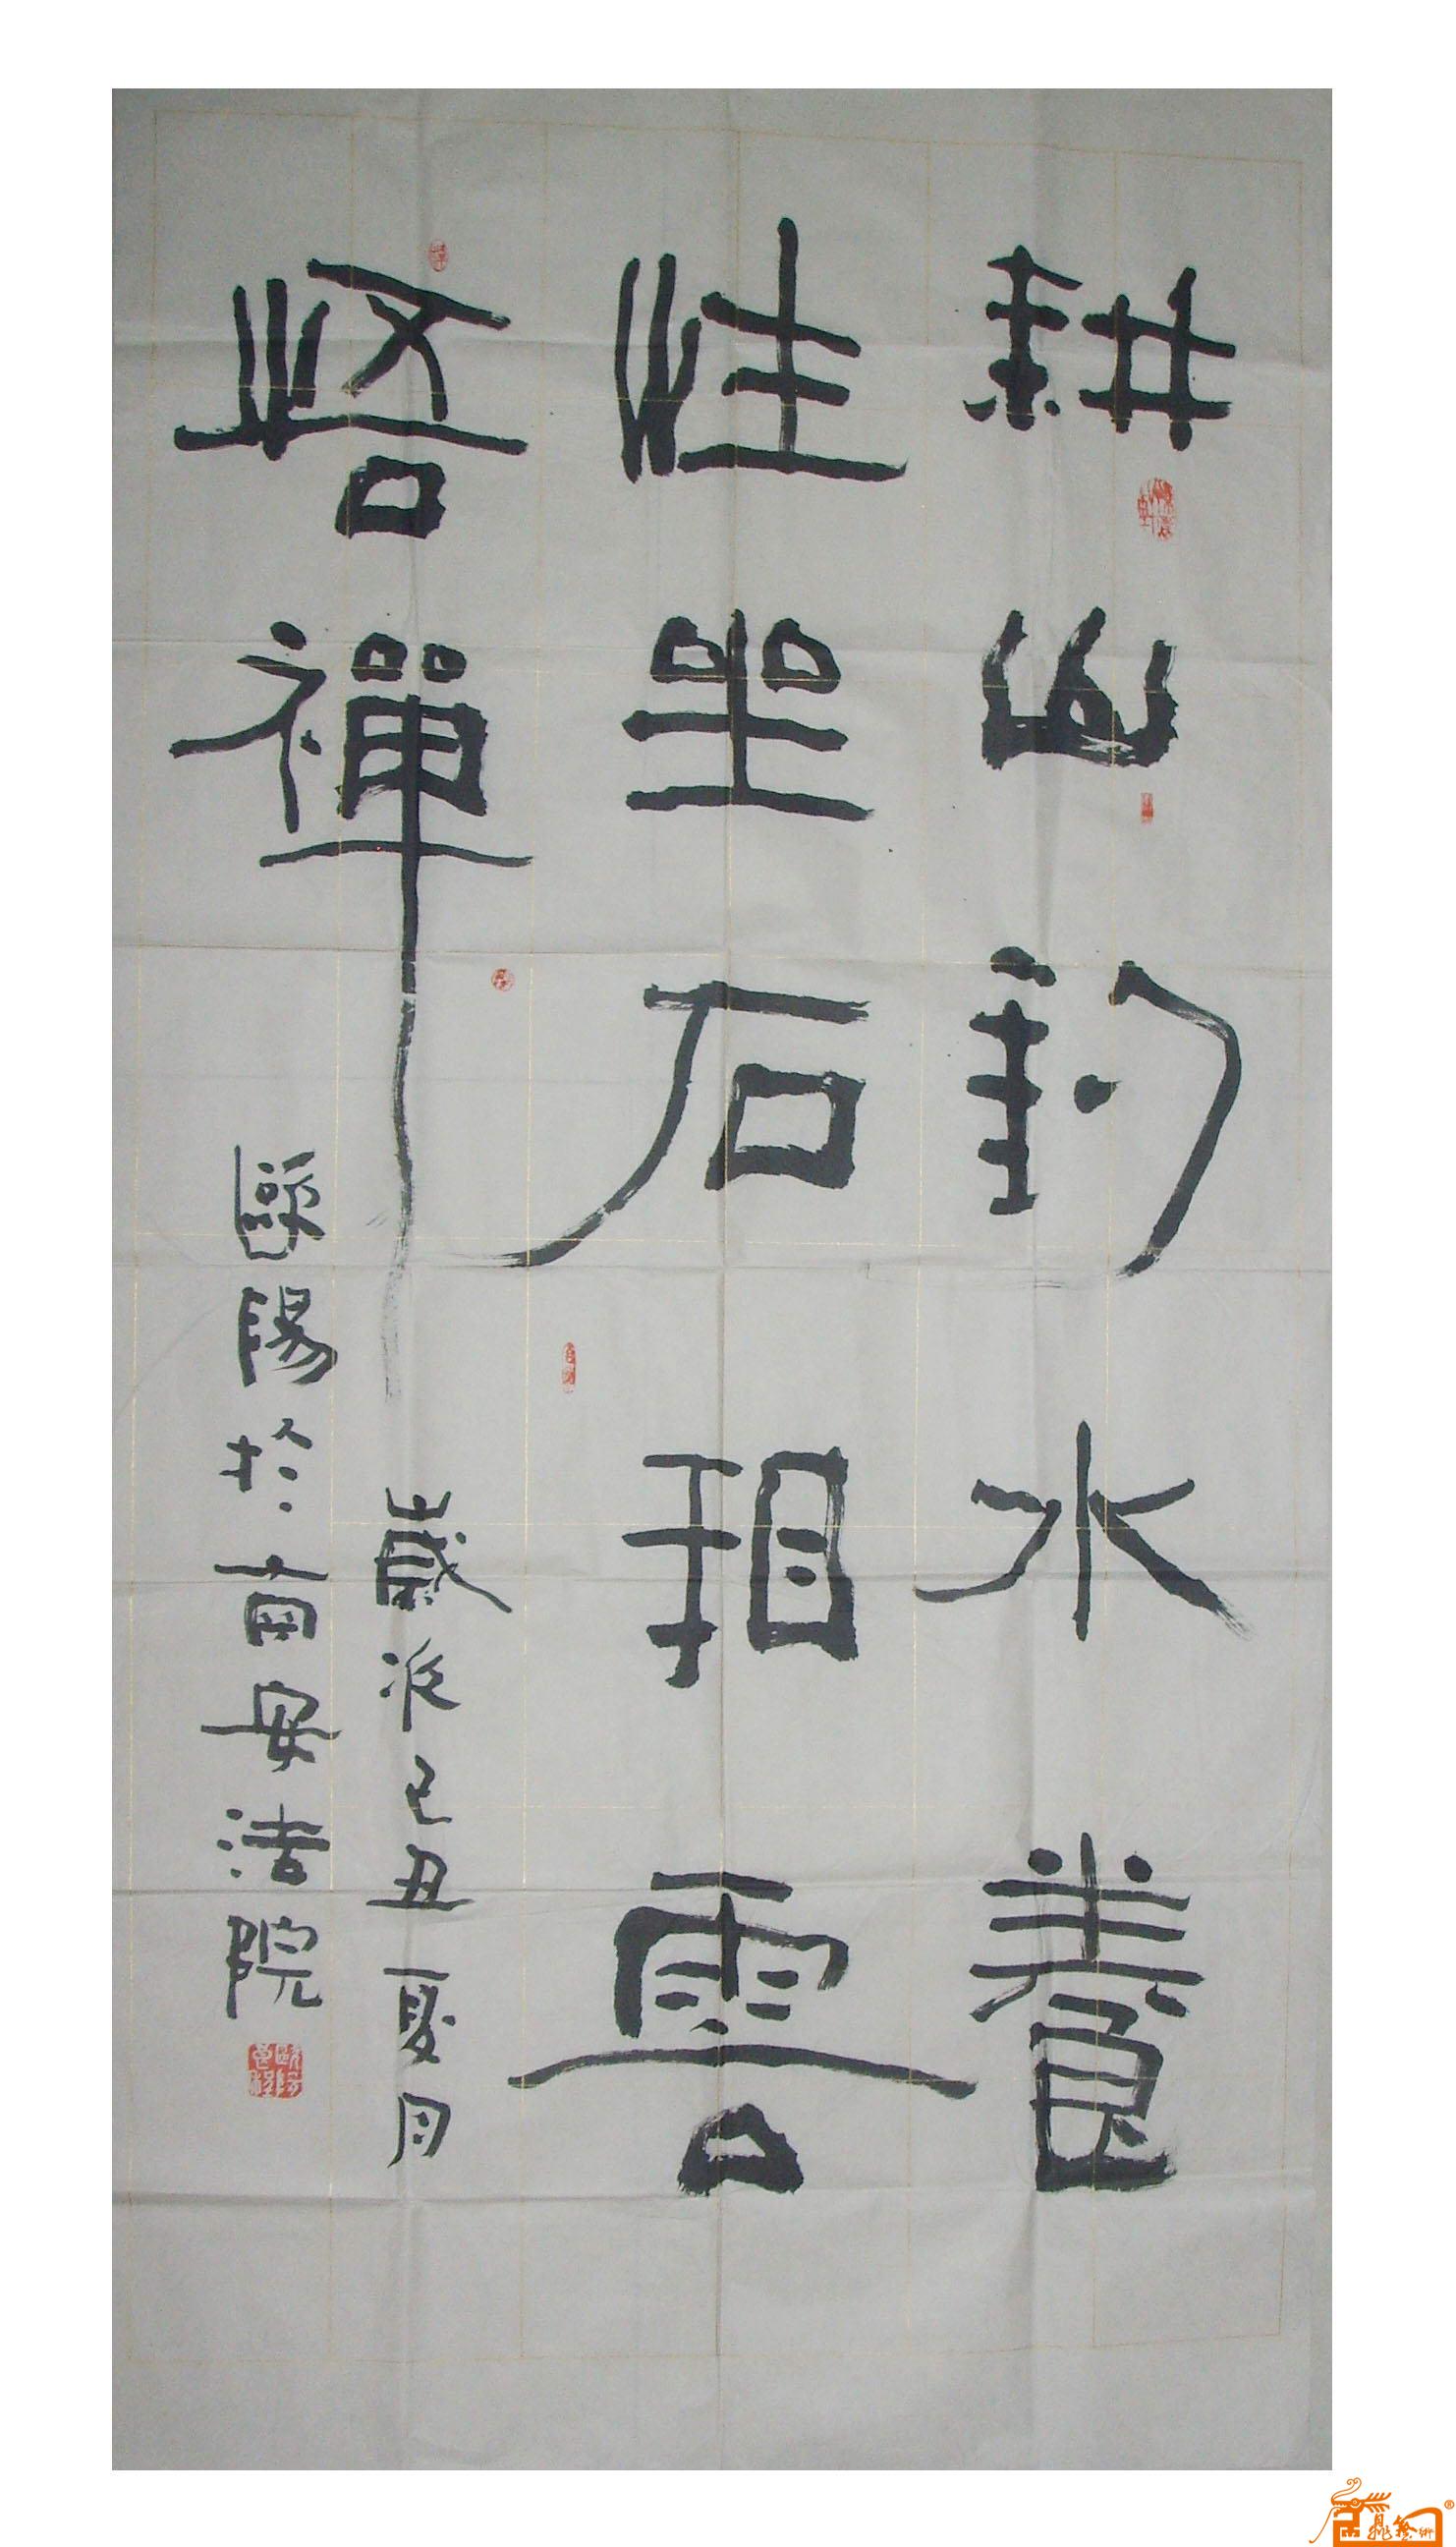 耕山釣水養
性坐石相雲
悟禪
歲次己丑夏月
歐陽於南安法院